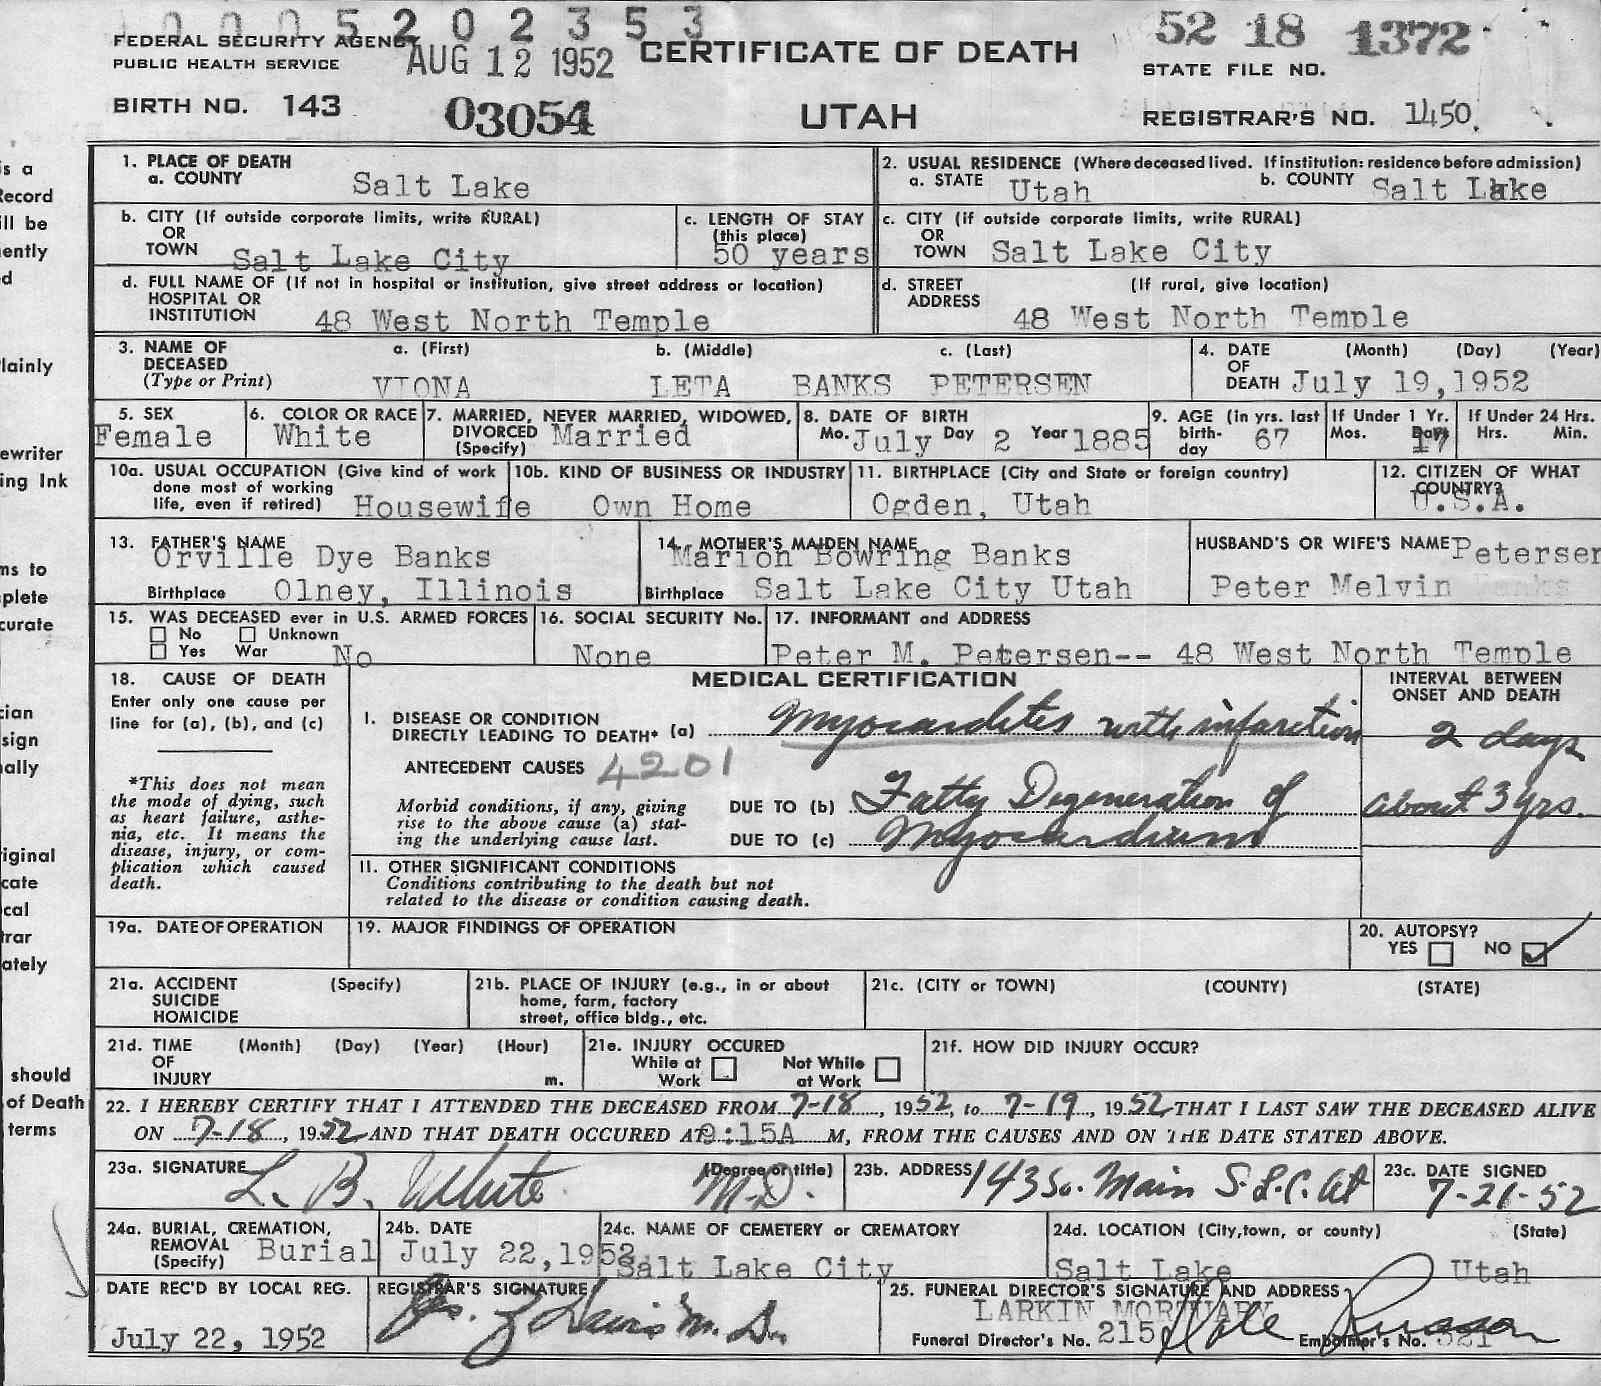 0005202353
52 18 1372
FEDERAL SECURITY AGENCY
PUBLIC HEALTH SERVICE
AUG 12 1952
CERTIFICATE OF DEATH
STATE FILE NO.
BIRTH NO. 143
03054
UTAH
REGISTRAR'S NO. 1450
1. PLACE OF DEATH
a. COUNTY Salt Lake
2. USUAL RESIDENCE (Where deceased lived. If institution: residence before admission)
a. STATE Utah b. COUNTY Salt Lake
b. CITY (If outside corporate limits, write RURAL)
OR
TOWN Salt Lake City
c. LENGTH OF STAY
(this place)
50 years
c. CITY (if outside corporate limits, write RURAL)
OR
TOWN Salt Lake City
d. FULL NAME OF (If not in hospital or institution, give street address or location)
HOSPITAL OR
INSTITUTION 48 West North Temple
d. STREET (If rural, give location)
ADDRESS
48 West North Temple
3. NAME OF a. (First) b. (Middle) c. (Last)
DECEASED
(Type or Print) VIONA LETA BANKS PETERSEN
4. DATE (Month) (Day) (Year)
OF
DEATH July 19, 1952
5. SEX
Female
6. COLOR OR RACE
White
7. MARRIED, NEVER MARRIED, WIDOWED,
DIVORCED Married
(Specify)
8. DATE OF BIRTH
Mo. July Day 2 Year 1885
9. AGE (in yrs. last
birth-
day 67
If Under 1 Yr.
Mos. Days 17
If Under 24 Hrs.
Hrs. Min.
10a. USUAL OCCUPATION (Give kind of work
done most of working
life, even if retired) Housewife
10b. KIND OF BUSINESS OR INDUSTRY
Own Home
11. BIRTHPLACE (City and State or foreign country)
Ogden, Utah
12. CITIZEN OF WHAT
COUNTRY?
U.S.A.
13. FATHER'S NAME
Orville Dye Banks
Birthplace Olney, Illinois
14. MOTHER'S MAIDEN NAME
Marion Bowring Banks
Birthplace Salt Lake City Utah
HUSBAND'S OR WIFE'S NAME Petersen
Peter Melvin
15. WAS DECEASED ever in U.S. ARMED FORCES
No Unknown
Yes War No
16. SOCIAL SECURITY No.
None
17. INFORMANT and ADDRESS
Peter M. Petersen-- 48 West North Temple
18. CAUSE OF DEATH
Enter only one cause per
line for (a), (b), and (c)
*This does not mean
the mode of dying, such
as heart failure, asthe-
nia, etc. It means the
disease, injury, or com-
plication which caused
death.
MEDICAL CERTIFICATION
INTERVAL BETWEEN
ONSET AND DEATH
I. DISEASE OR CONDITION
DIRECTLY LEADING TO DEATH* (a) Myocarditis with infarction 2 days
ANTECEDENT CAUSES 4201
Morbid conditions, if any, giving
rise to the above cause (a) stat-
ing the underlying cause last.
DUE TO (b) Fatty Degeneration of about 3 yrs.
DUE TO (c) Myocardium
II. OTHER SIGNIFICANT CONDITIONS
Conditions contributing to the death but not
related to the disease or condition causing death.
19a. DATE OF OPERATION
19. MAJOR FINDINGS OF OPERATION
20. AUTOPSY?
YES NO
21a. ACCIDENT (Specify)
SUICIDE
HOMICIDE
21b. PLACE OF INJURY (e.g., in or about
home, farm, factory
street, office bldg., etc.
21c. (CITY or TOWN) (COUNTY) (STATE)
21d. TIME (Month) (Day) (Year) (Hour)
OF
INJURY m.
21e. INJURY OCCURED
While at Work Not While at Work
21f. HOW DID INJURY OCCUR?
22. I HEREBY CERTIFY THAT I ATTENDED THE DECEASED FROM 7-18, 1952, to 7-19, 1952 THAT I LAST SAW THE DECEASED ALIVE
ON 7-18, 1952 AND THAT DEATH OCCURED AT 9:15A M, FROM THE CAUSES AND ON THE DATE STATED ABOVE.
23a. SIGNATURE (Degree or title)
L. B. White M.D.
23b. ADDRESS 143 So. Main S.L.C. Ut
23c. DATE SIGNED
7-21-52
24a. BURIAL, CREMATION,
REMOVAL Burial
(Specify)
24b. DATE
July 22, 1952
24c. NAME OF CEMETERY or CREMATORY
Salt Lake City
24d. LOCATION (City, town, or county) (State)
Salt Lake Utah
DATE REC'D BY LOCAL REG.
July 22, 1952
REGISTRAR'S SIGNATURE
Davis M.D.
25. FUNERAL DIRECTOR'S SIGNATURE AND ADDRESS
LARKIN MORTUARY
Funeral Director's No. 215 Embalmer's No. 321
is a
Record
ill be
ently
d
lainly
ewriter
ing Ink
ms to
plete
curate
cian
sign
ally
iginal
cate
cal
trar
ately
should
of Death
terms